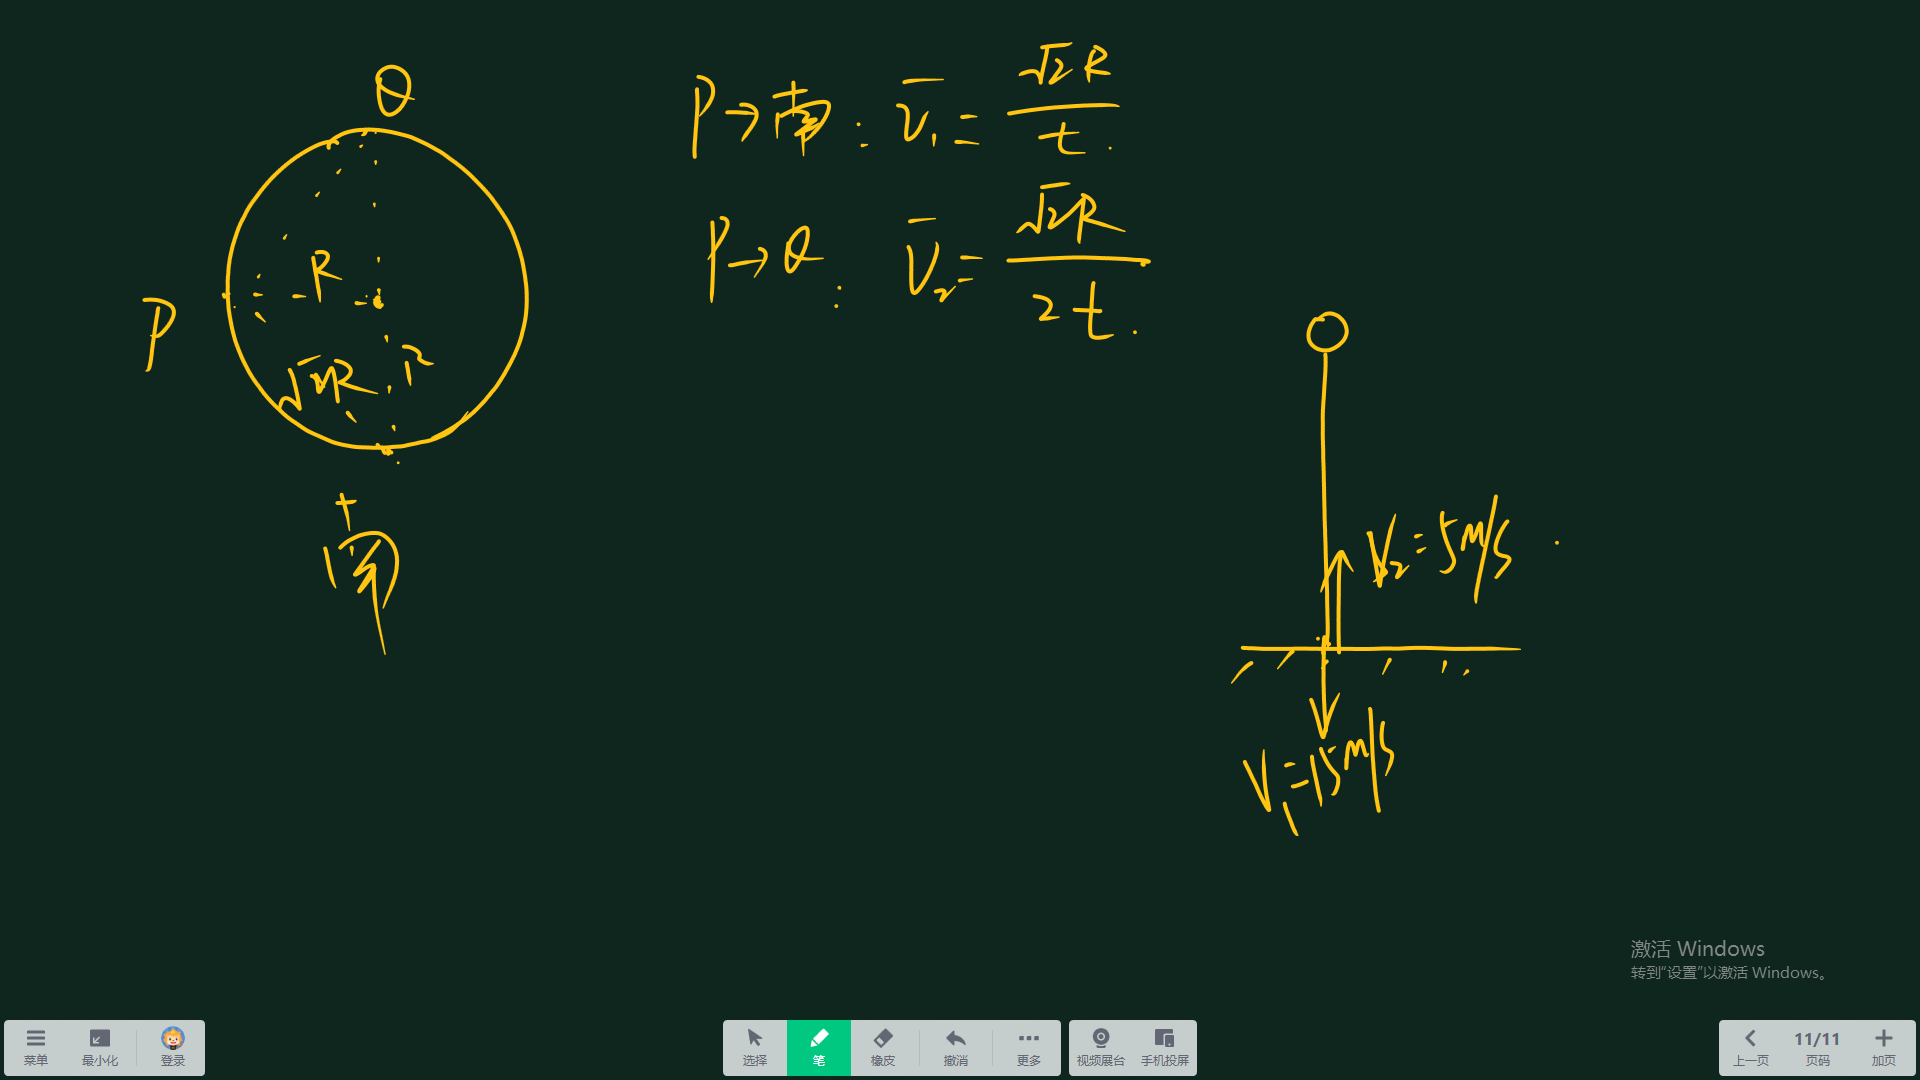 Q
P
R
√2R
R
南
P→南: V̄₁=√2R/t.
P→Q: V̄₂=√2R/2t.
V₂=5m/s
V₁=15m/s
激活 Windows
转到“设置”以激活 Windows。
菜单
最小化
登录
选择
笔
橡皮
撤消
更多
视频展台
手机投屏
上一页
11/11
页码
加页